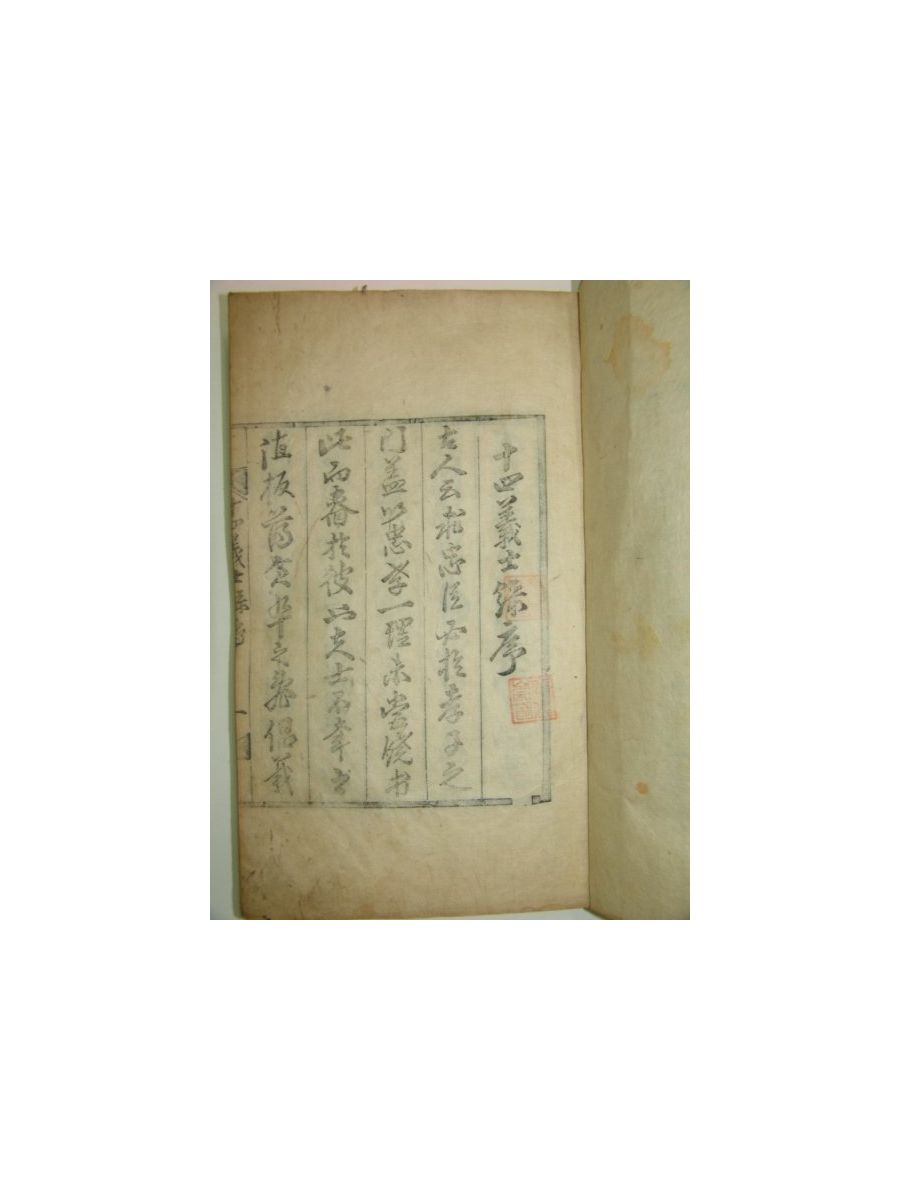 十四義士錄序
古人云求忠臣必於孝子之
門盖以忠孝一理未嘗饒於
此而嗇於彼也夫士不幸而
值板蕩奮率之飛倡義
十四義士錄序 一